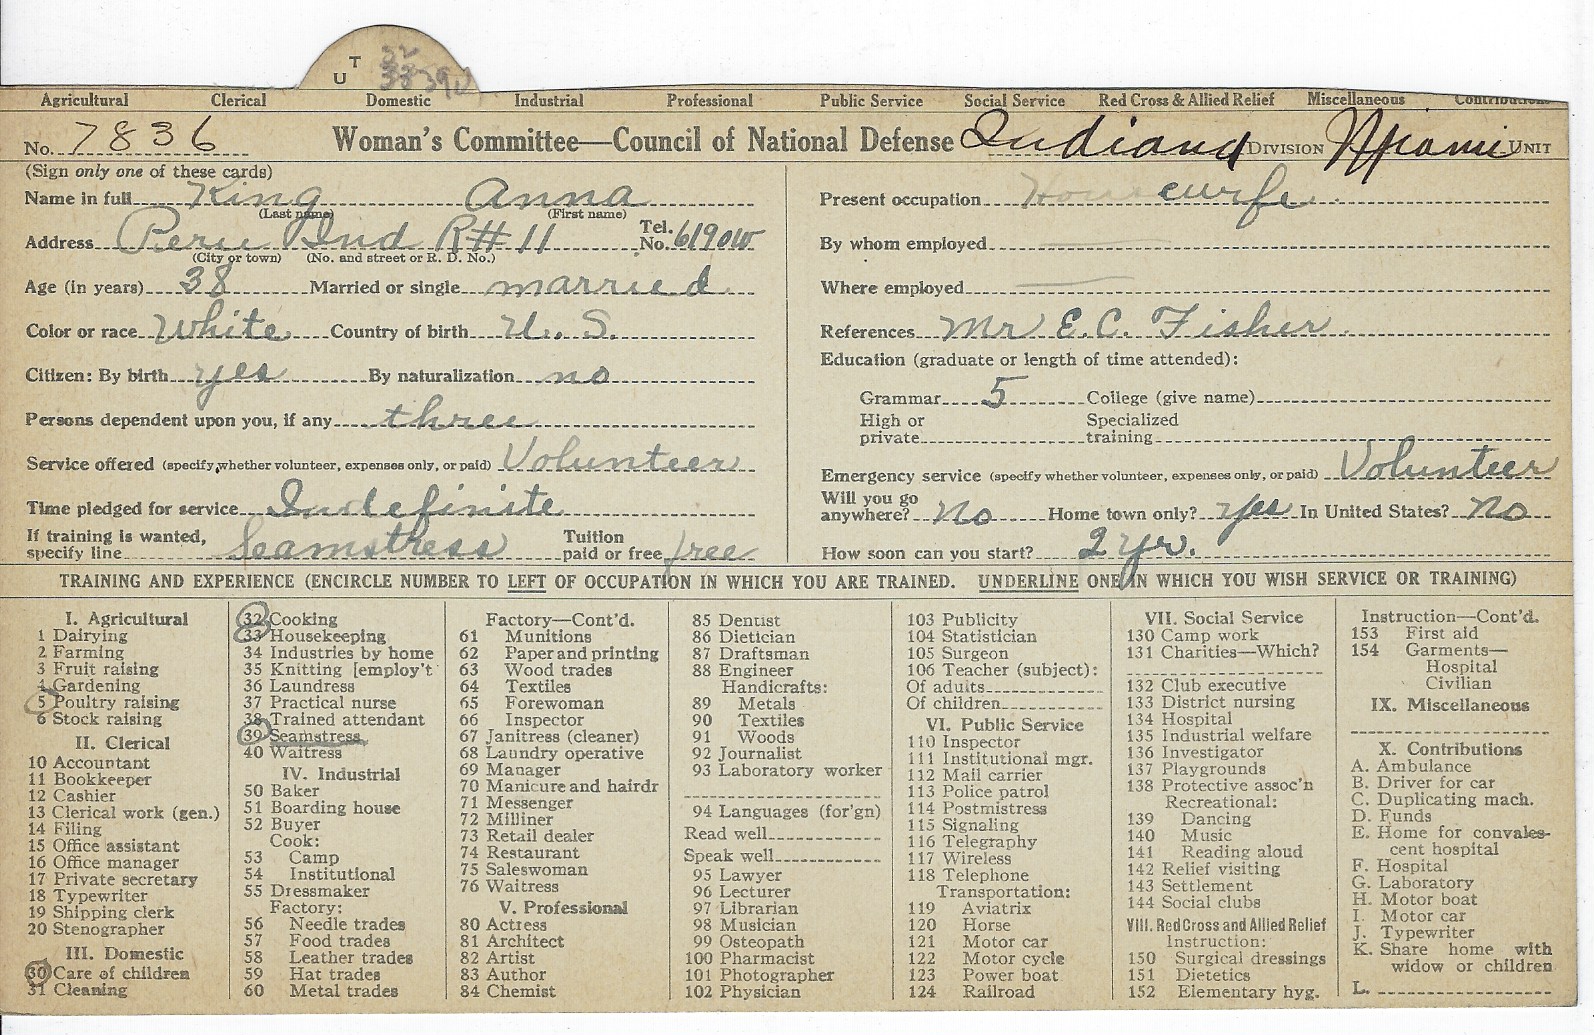 T
U
Agricultural Clerical Domestic Industrial Professional Public Service Social Service Red Cross & Allied Relief Miscellaneous Contributions
No. 7836 Woman's Committee—Council of National Defense Indiana DIVISION Miami UNIT
(Sign only one of these cards)
Name in full King Anna
(Last name) (First name)
Address Peru Ind R# 11 Tel. No. 6190W
(City or town) (No. and street or R. D. No.)
Age (in years) 38 Married or single married
Color or race White Country of birth U. S.
Citizen: By birth yes By naturalization no
Persons dependent upon you, if any three
Service offered (specify whether volunteer, expenses only, or paid) Volunteer
Time pledged for service Indefinite
If training is wanted, specify line Seamstress Tuition paid or free free
Present occupation Housewife
By whom employed
Where employed
References Mr E.C. Fisher
Education (graduate or length of time attended):
Grammar 5 College (give name)
High or private Specialized training
Emergency service (specify whether volunteer, expenses only, or paid) Volunteer
Will you go anywhere? No Home town only? Yes In United States? No
How soon can you start? 2 yr.
TRAINING AND EXPERIENCE (ENCIRCLE NUMBER TO LEFT OF OCCUPATION IN WHICH YOU ARE TRAINED. UNDERLINE ONE IN WHICH YOU WISH SERVICE OR TRAINING)
I. Agricultural
1 Dairying
2 Farming
3 Fruit raising
4 Gardening
5 Poultry raising
6 Stock raising
II. Clerical
10 Accountant
11 Bookkeeper
12 Cashier
13 Clerical work (gen.)
14 Filing
15 Office assistant
16 Office manager
17 Private secretary
18 Typewriter
19 Shipping clerk
20 Stenographer
III. Domestic
30 Care of children
31 Cleaning
32 Cooking
33 Housekeeping
34 Industries by home
35 Knitting [employ't
36 Laundress
37 Practical nurse
38 Trained attendant
39 Seamstress
40 Waitress
IV. Industrial
50 Baker
51 Boarding house
52 Buyer
Cook:
53 Camp
54 Institutional
55 Dressmaker
Factory:
56 Needle trades
57 Food trades
58 Leather trades
59 Hat trades
60 Metal trades
Factory—Cont'd.
61 Munitions
62 Paper and printing
63 Wood trades
64 Textiles
65 Forewoman
66 Inspector
67 Janitress (cleaner)
68 Laundry operative
69 Manager
70 Manicure and hairdr
71 Messenger
72 Milliner
73 Retail dealer
74 Restaurant
75 Saleswoman
76 Waitress
V. Professional
80 Actress
81 Architect
82 Artist
83 Author
84 Chemist
85 Dentist
86 Dietician
87 Draftsman
88 Engineer
Handicrafts:
89 Metals
90 Textiles
91 Woods
92 Journalist
93 Laboratory worker
94 Languages (for'gn)
Read well
Speak well
95 Lawyer
96 Lecturer
97 Librarian
98 Musician
99 Osteopath
100 Pharmacist
101 Photographer
102 Physician
103 Publicity
104 Statistician
105 Surgeon
106 Teacher (subject):
Of adults
Of children
VI. Public Service
110 Inspector
111 Institutional mgr.
112 Mail carrier
113 Police patrol
114 Postmistress
115 Signaling
116 Telegraphy
117 Wireless
118 Telephone
Transportation:
119 Aviatrix
120 Horse
121 Motor car
122 Motor cycle
123 Power boat
124 Railroad
VII. Social Service
130 Camp work
131 Charities—Which?
132 Club executive
133 District nursing
134 Hospital
135 Industrial welfare
136 Investigator
137 Playgrounds
138 Protective assoc'n
Recreational:
139 Dancing
140 Music
141 Reading aloud
142 Relief visiting
143 Settlement
144 Social clubs
VIII. Red Cross and Allied Relief
Instruction:
150 Surgical dressings
151 Dietetics
152 Elementary hyg.
Instruction—Cont'd.
153 First aid
154 Garments—
Hospital
Civilian
IX. Miscellaneous
X. Contributions
A. Ambulance
B. Driver for car
C. Duplicating mach.
D. Funds
E. Home for convales-
cent hospital
F. Hospital
G. Laboratory
H. Motor boat
I. Motor car
J. Typewriter
K. Share home with
widow or children
L.